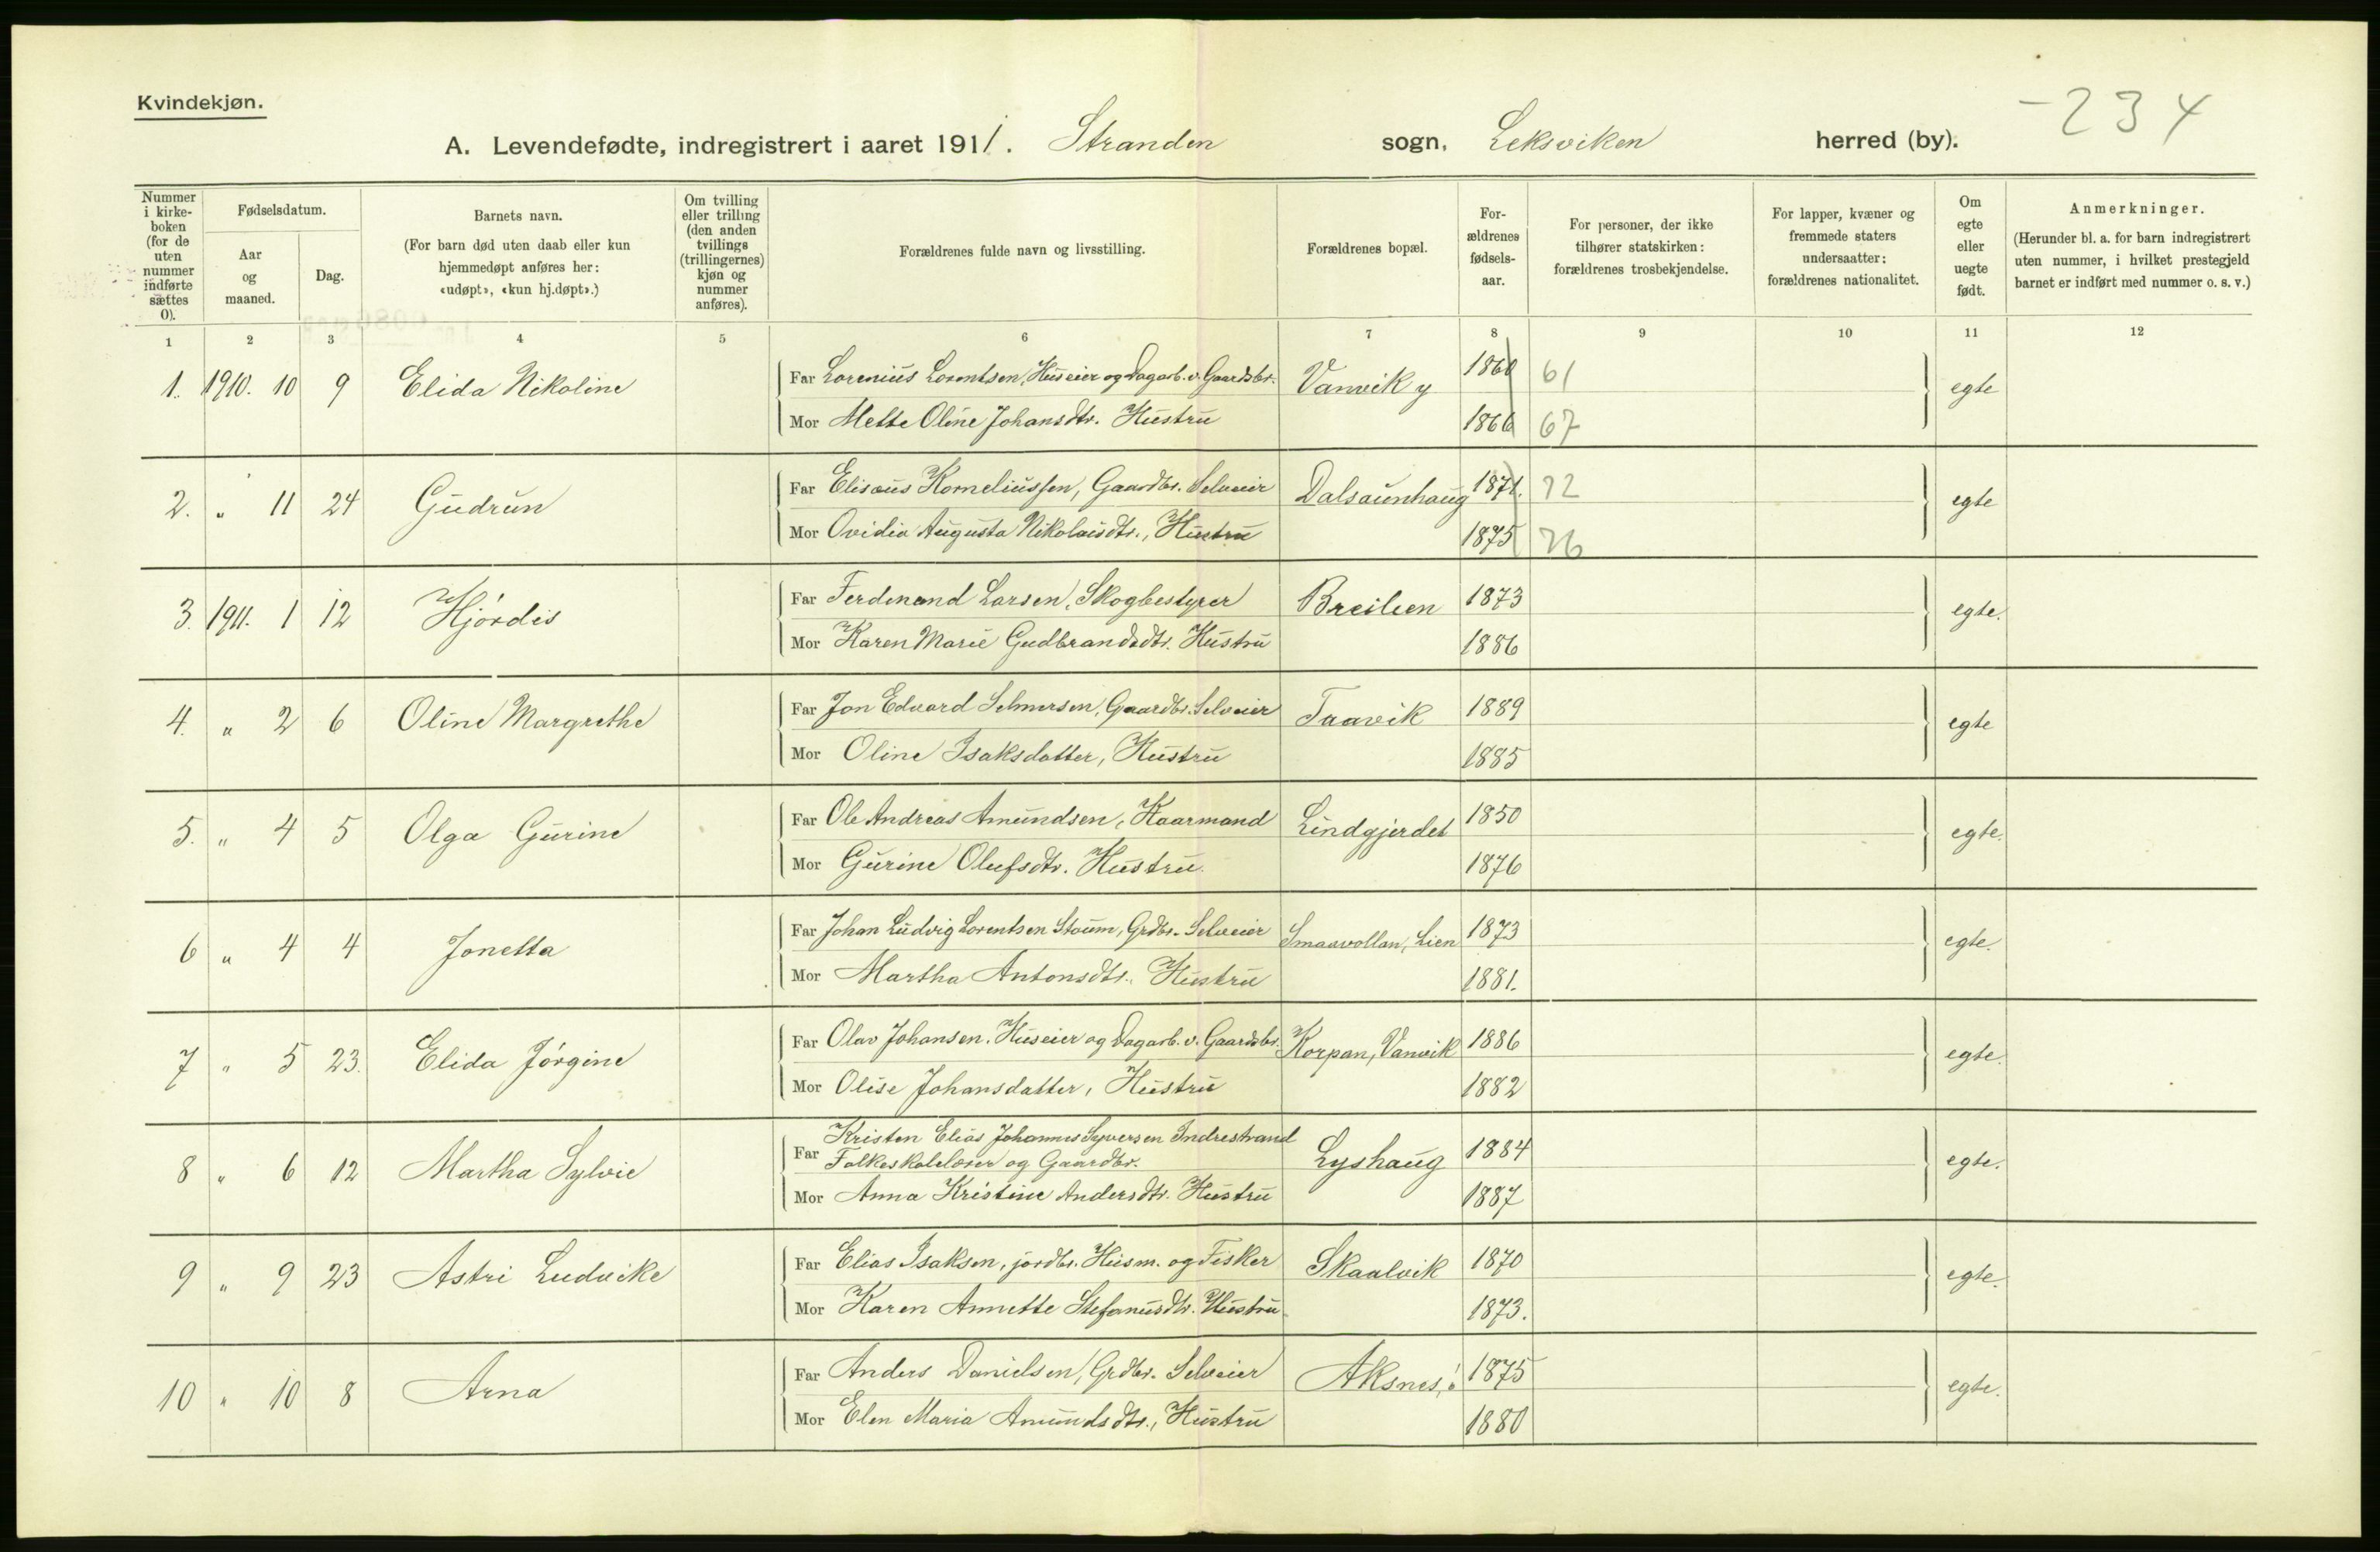 Kvindekjøn.
-234
A. Levendefødte, indregistrert i aaret 1911. Stranden sogn, Leksviken herred (by).
Nummer i kirke-boken (for de uten nummer indførte sættes 0).
Fødselsdatum.
Aar og maaned.
Dag.
Barnets navn.
(For barn død uten daab eller kun hjemmedøpt anføres her: «udøpt», «kun hj.døpt».)
Om tvilling eller trilling (den anden tvillings (trillingernes) kjøn og nummer anføres).
Forældrenes fulde navn og livsstilling.
Forældrenes bopæl.
For-ældrenes fødsels-aar.
For personer, der ikke tilhører statskirken: forældrenes trosbekjendelse.
For lapper, kvæner og fremmede staters undersaatter: forældrenes nationalitet.
Om egte eller uegte født.
Anmerkninger.
(Herunder bl. a. for barn indregistrert uten nummer, i hvilket prestegjeld barnet er indført med nummer o. s. v.)
1 2 3 4 5 6 7 8 9 10 11 12
1. 1910. 10 9 Elida Nikoline Far Lorenius Lorentsen, Huseier og Dagarb. v. Gaardsbr. Vanvik y 1860 61 egte
Mor Mette Oline Johansdtr. Hustru 1866 67
2. " 11 24 Gudrun Far Elisæus Korneliussen, Gaardbr. Selveier Dalsaunhaug 1871. 72 egte
Mor Ovidia Augusta Nikolaisdtr., Hustru 1875 76
3. 1911. 1 12 Hjórdis Far Ferdinand Larsen, Skogbestyrer Breilien 1873 egte.
Mor Karen Marie Gudbrandsdtr. Hustru 1886
4. " 2 6 Oline Margrethe Far Jon Edvard Selmersen, Gaardbr. Selveier Taavik 1889 egte
Mor Oline Isaksdatter, Hustru 1885
5. " 4 5 Olga Gurine Far Ole Andreas Amundsen, Kaarmand Lindgjerdet 1850 egte.
Mor Gurine Olufsdtr. Hustru. 1876
6 " 4 4 Jonetta Far Johan Ludvig Lorentsen Staum, Grdbr. Selveier Smaavollan, Lien 1873 egte.
Mor Martha Antonsdtr. Hustru 1881.
7 " 5 23. Elida Jórgine Far Olav Johansen. Huseier og Dagarb. v. Gaardsbr. Korpan, Vanvik 1886 egte.
Mor Olise Johansdatter, Hustru 1882
8 " 6 12 Martha Sylvie Far Kristen Elias Johannes Syversen Indrestrand
Folkeskolelærer og Gaardbr. Lyshaug 1884 egte.
Mor Anna Kristine Andersdtr. Hustru 1887
9 " 9 23 Astri Ludvike Far Elias Isaksen, jordbr. Husm. og Fisker Skaalvik 1870 egte.
Mor Karen Annette Stefanusdtr. Hustru 1873.
10 " 10 8 Arna Far Anders Danielsen, Grdbr. Selveier Aksnes, 1875 egte.
Mor Elen Maria Amundsdtr., Hustru 1880